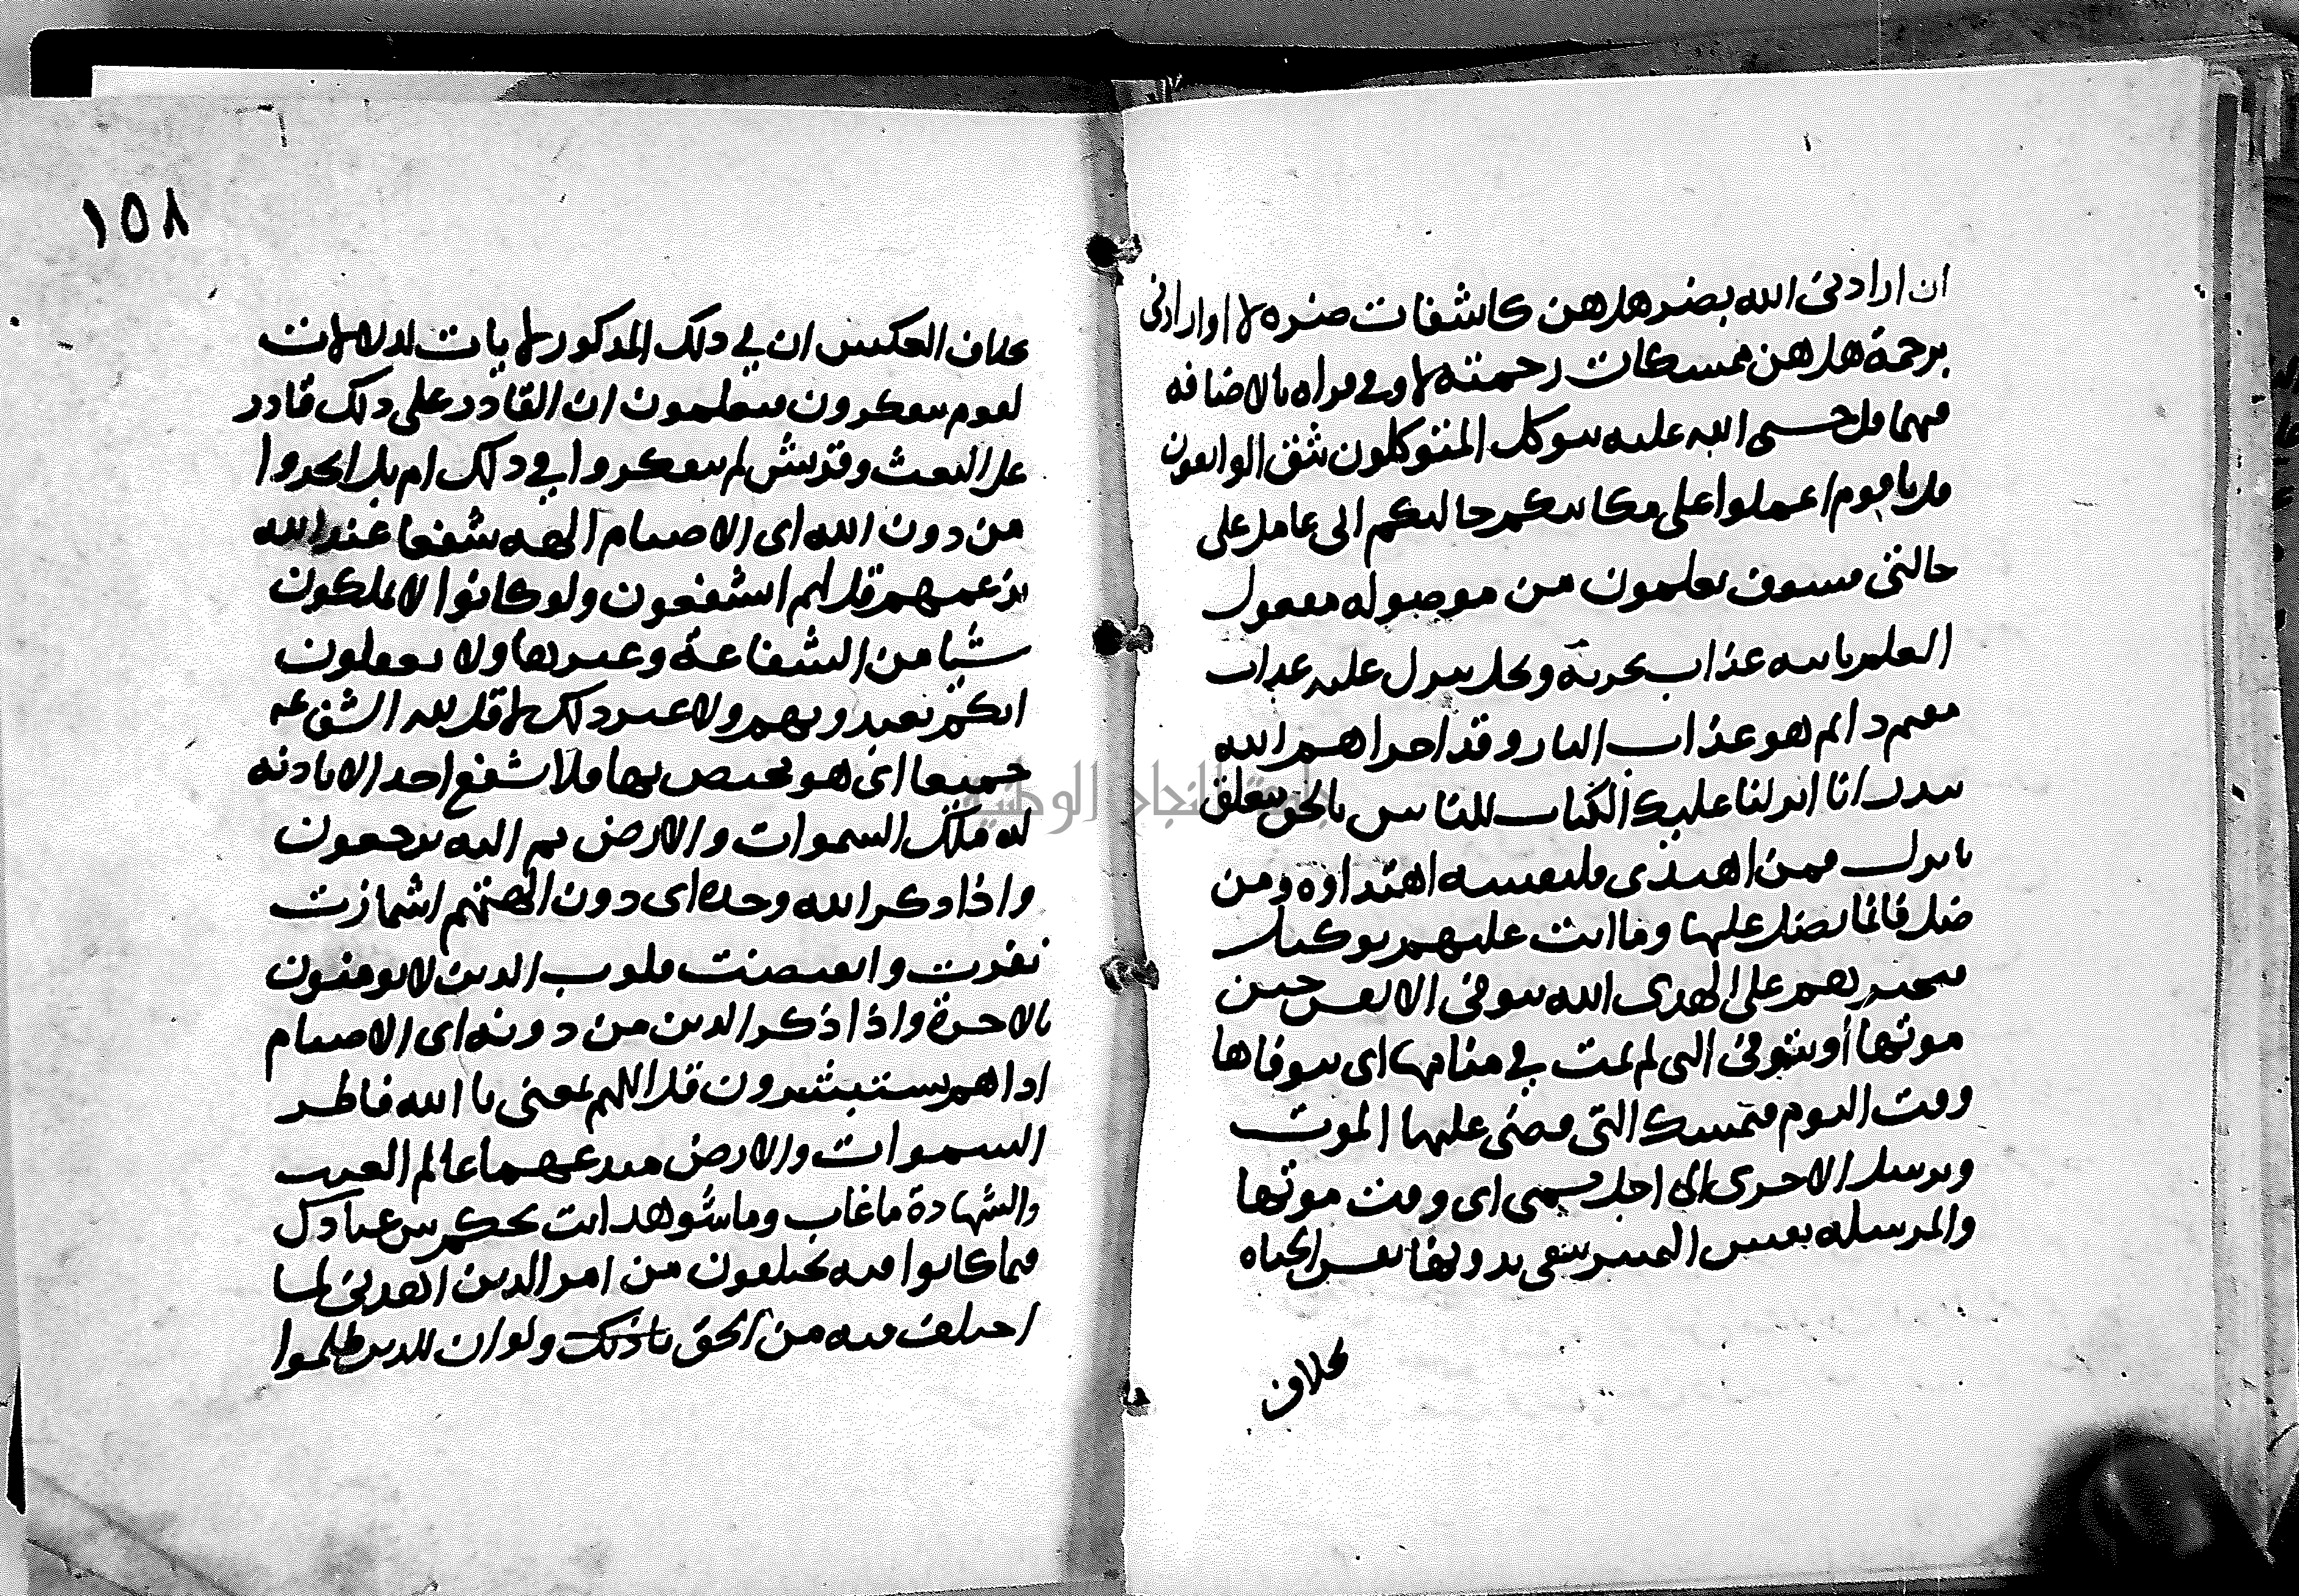 ان ارادنى الله بضر هل هن كاشفات ضره لا او ارادنى
برحمة هل هن ممسكات رحمته لا وفي قراه بالاضافه
فيهما قل حسبى الله عليه يتوكل المتوكلون يثق الواثقون
قل يا قوم اعملوا على مكانتكم حالتكم انى عامل على
حالتى فسوف تعلمون من موصوله مفعول
العلم ياتيه عذاب يخزيه ويحل ينزل عليه عذاب
مقيم دائم هو عذاب النار وقد اخزاهم الله
ببدر انا انزلنا عليك الكتاب للناس بالحق متعلق
بانزل فمن اهتدى فلنفسه اهتداوه ومن
ضل فانما يضل عليها وما انت عليهم بوكيل
فتجبرهم على الهدى الله يتوفى الانفس حين
موتها او يتوفى التى لم تمت في منامها اى يتوفاها
وقت النوم فتمسك التى قضى عليها الموت
ويرسل الاخرى الى اجل مسمى اى وقت موتها
والمرسله نفس التمييز تبقى بدونها نفس الحياه
بخلاف
١٥٨
بخلاف العكس ان في ذلك المذكور لايات لدلالات
لقوم يتفكرون فيعلمون ان القادر على ذلك قادر
على البعث وقريش لم يتفكروا في ذلك ام بل اتخذوا
من دون الله اى الاصنام الهه شفعا عند الله
بزعمهم قل لهم ايشفعون ولو كانوا لا يملكون
شيا من الشفاعة وغيرها ولا يعقلون
انكم تعبدونهم ولا غير ذلك لا قل لله الشفاعه
جميعا اى هو مختص بها فلا يشفع احد الا باذنه
له ملك السموات والارض ثم اليه ترجعون
واذا ذكر الله وحده اى دون الهتهم اشمازت
نفرت وانقبضت قلوب الذين لا يومنون
بالاخرة واذا ذكر الذين من دونه اى الاصنام
اذا هم يستبشرون قل اللهم بمعنى يا الله فاطر
السموات والارض مبدعهما عالم الغيب
والشهادة ما غاب وما شوهد انت تحكم بين عبادك
فيما كانوا فيه يختلفون من امر الدين اهدنى لما
اختلف فيه من الحق باذنك ولو ان للذين ظلموا
جامعة النجاح الوطنية